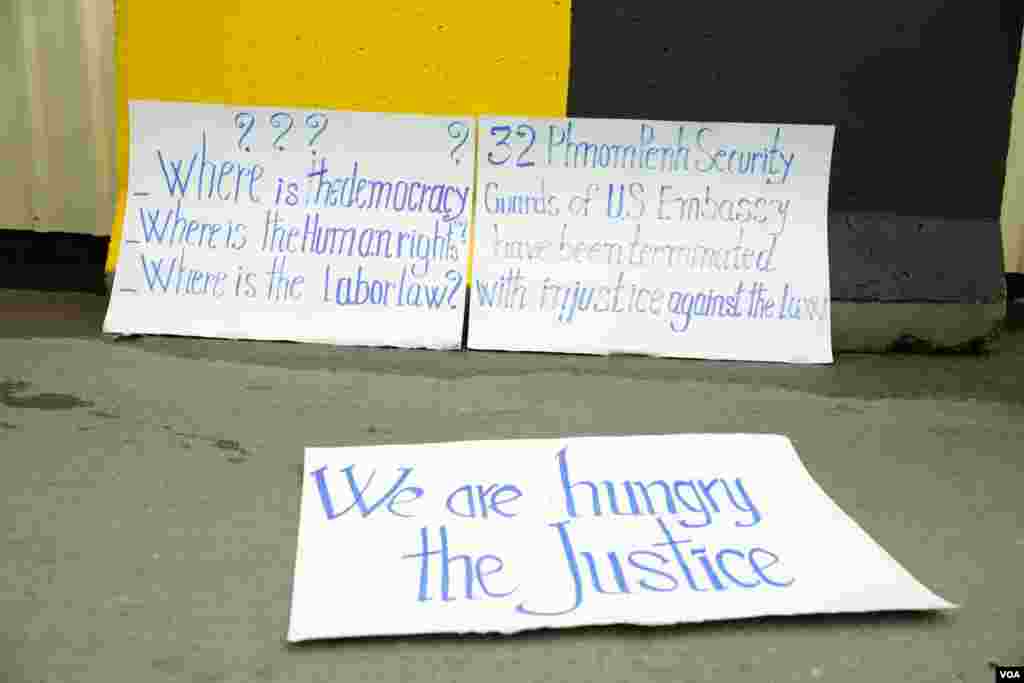 ? ? ? ?
- Where is the democracy
- Where is the Human rights?
- Where is the labor law?
32 Phnom Penh Security
Guards of U.S Embassy
have been terminated
with injustice against the law
We are hungry
the Justice
VOA